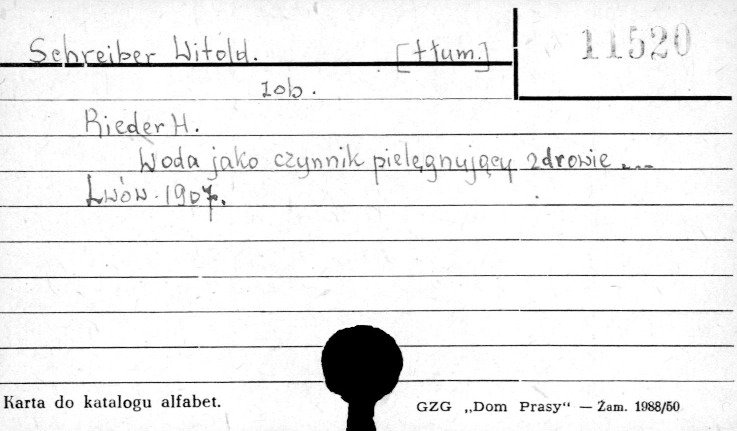 Schreiber Witold. [tłum.]
11520
zob.
Rieder H.
Woda jako czynnik pielęgnujący zdrowie ...
Lwów. 1907.
Karta do katalogu alfabet.
GZG „Dom Prasy“ — Zam. 1988/50